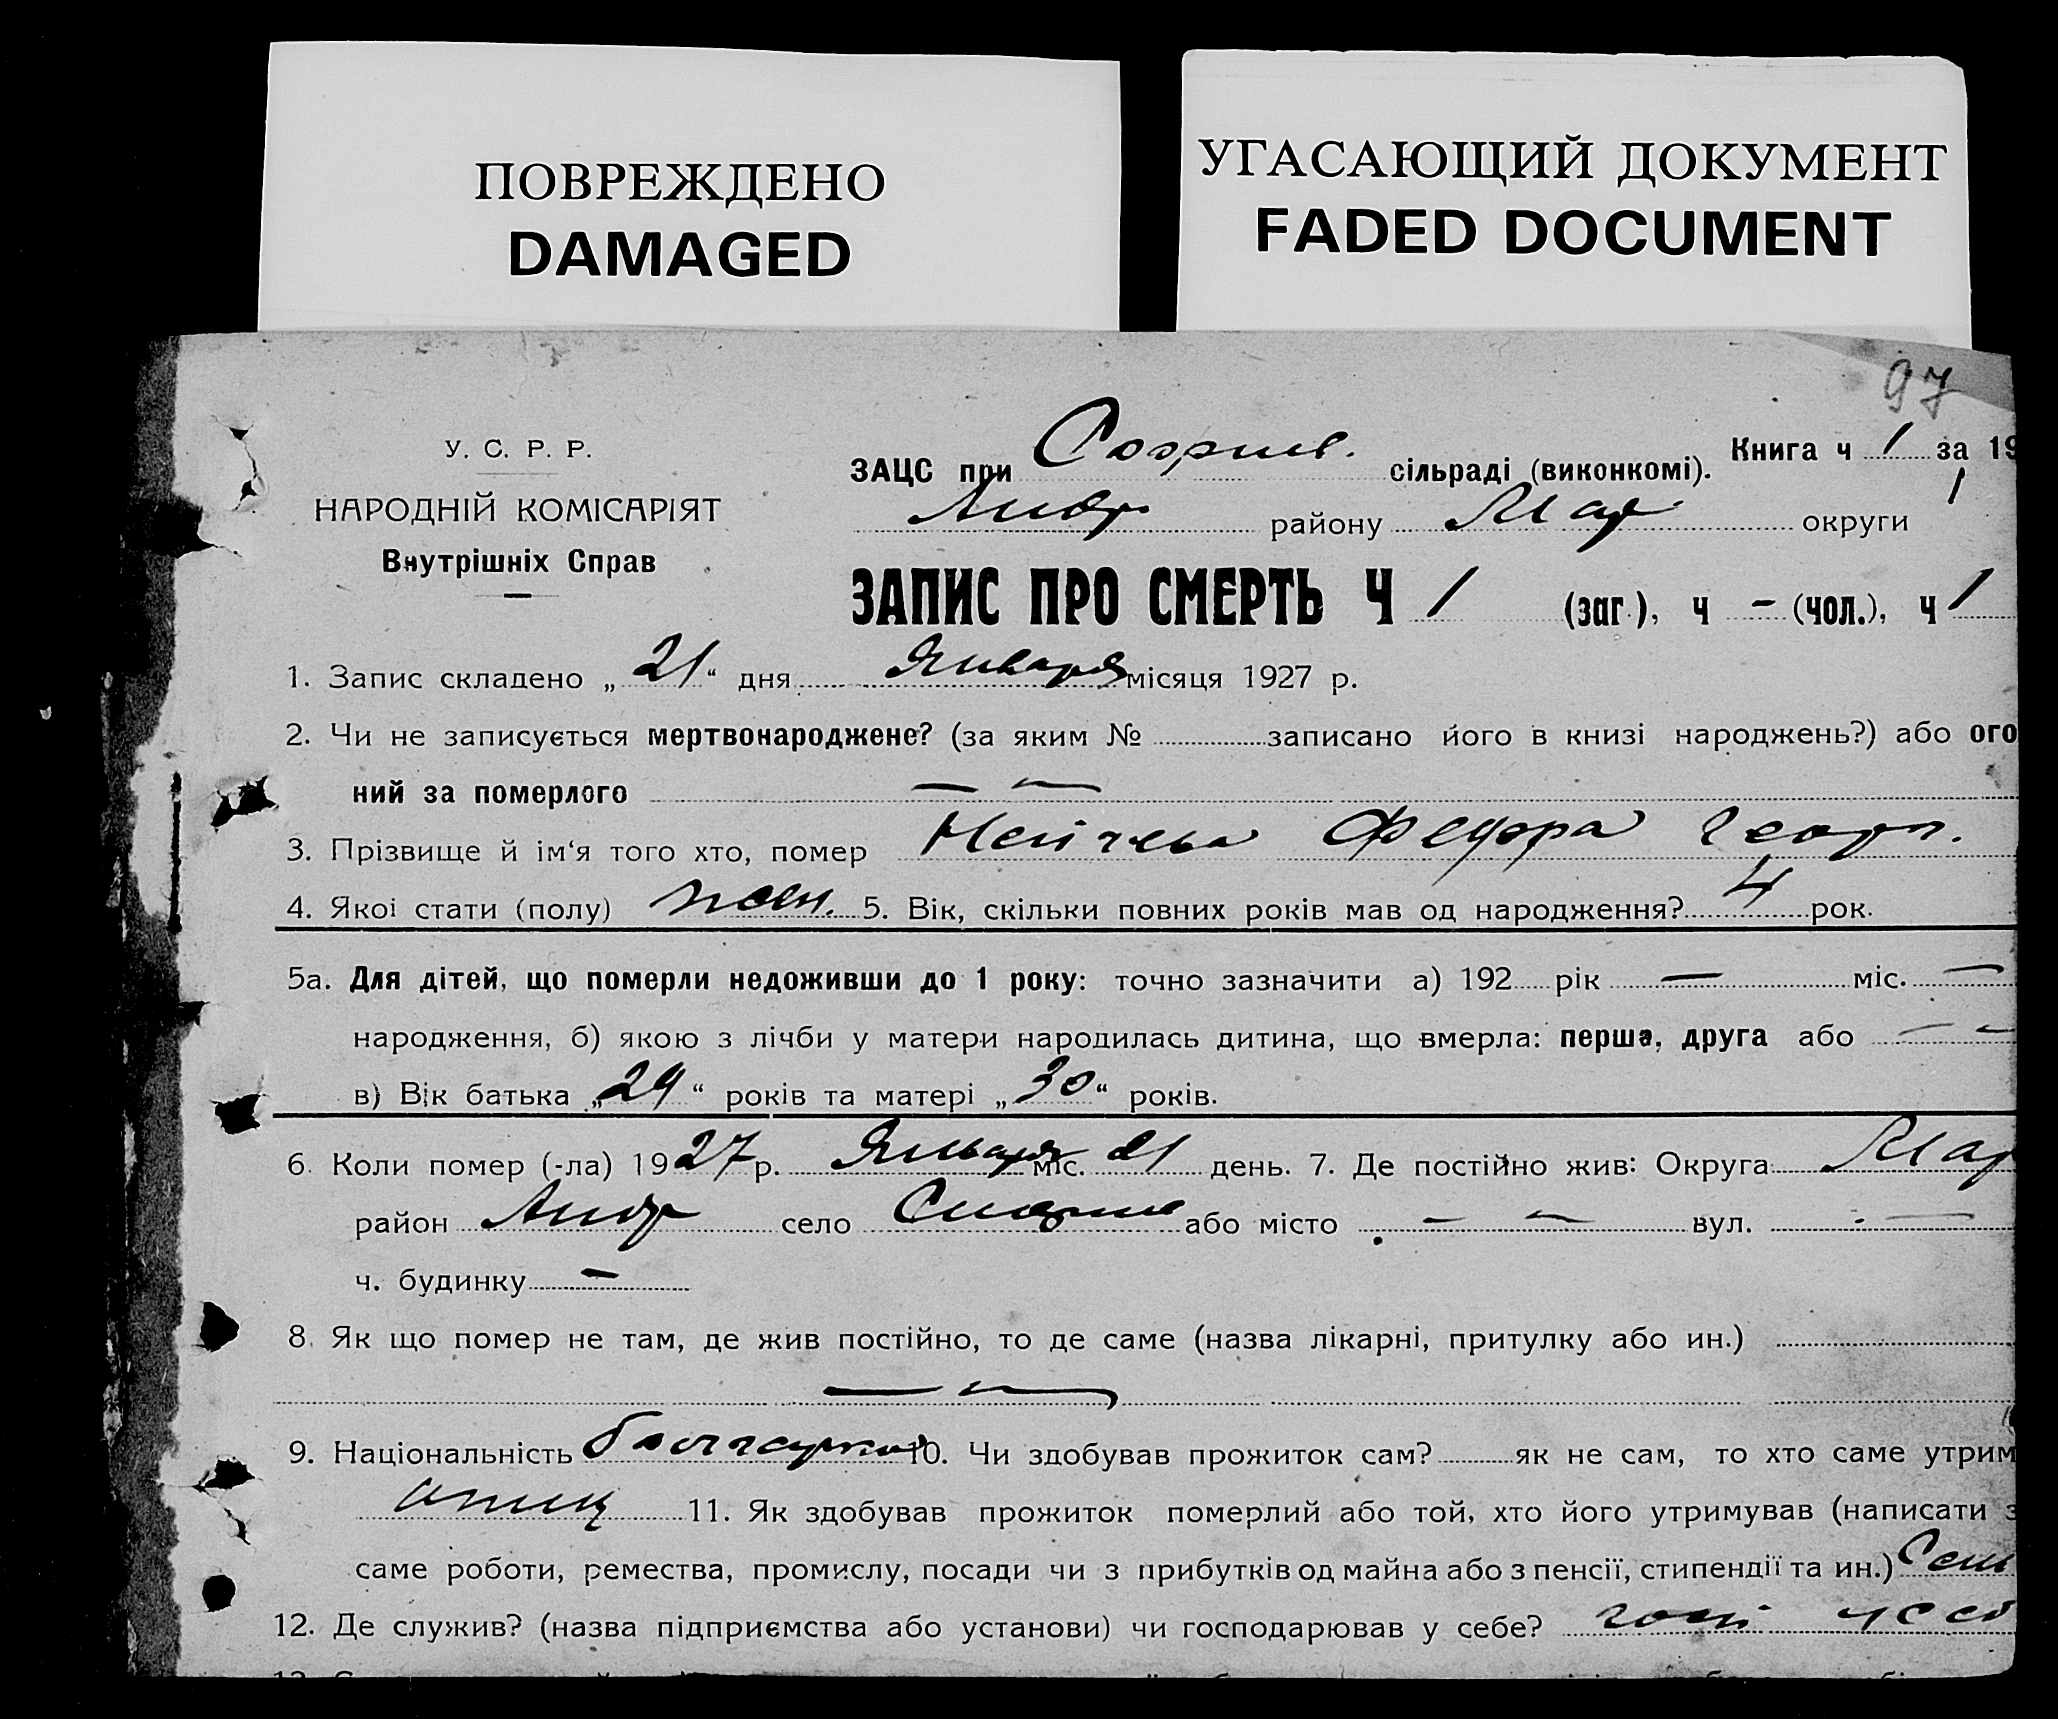 ПОВРЕЖДЕНО
DAMAGED
УГАСАЮЩИЙ ДОКУМЕНТ
FADED DOCUMENT
97
У. С. Р. Р.
НАРОДНІЙ КОМІСАРІЯТ
Внутрішніх Справ
Книга ч 1 за 19
ЗАЦС при Софиев. сільраді (виконкомі).
1
Андр району Мар округи
ЗАПИС ПРО СМЕРТЬ Ч 1 (заг.), ч - (чол.), ч 1
1. Запис складено „21“ дня Января місяця 1927 р.
2. Чи не записується мертвонароджене? (за яким № записано його в книзі народжень?) або ого
ний за померлого — —
3. Прізвище й ім'я того хто, помер Федора Георг.
4. Якоі стати (полу) жен. 5. Вік, скільки повних років мав од народження? 4 рок.
5а. Для дітей, що померли недоживши до 1 року: точно зазначити а) 192 рік — міс. —
народження, б) якою з лічби у матери народилась дитина, що вмерла: перша, друга або — —
в) Вік батька „29“ років та матері „30“ років.
6. Коли помер (-ла) 1927 р. Января міс. 21 день. 7. Де постійно жив: Округа Мар
район Андр село або місто — — вул. —
ч. будинку —
8. Як що помер не там, де жив постійно, то де саме (назва лікарні, притулку або ин.)
— —
9. Національність 10. Чи здобував прожиток сам? як не сам, то хто саме утрим
отец 11. Як здобував прожиток померлий або той, хто його утримував (написати з
саме роботи, ремества, промислу, посади чи з прибутків од майна або з пенсії, стипендії та ин.) Сель
12. Де служив? (назва підприємства або установи) чи господарював у себе?